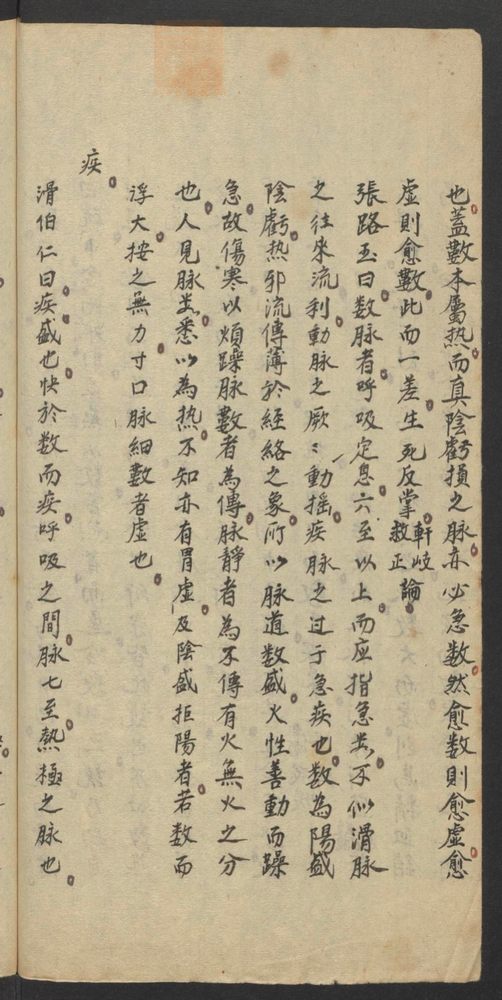 也蓋數本屬热而真陰虧損之脉亦必急数然愈数則愈虚愈
虚則愈數此而一差生死反掌軒岐救正論
張路玉曰数脉者呼吸定息六至以上而应指急数不似滑脉
之往来流利動脉之厥〻動摇疾脉之过于急疾也数為陽盛
陰虧热邪流傳薄於經絡之象所以脉道数盛火性善動而躁
急故傷寒以煩躁脉數者為傳脉靜者為不傳有火無火之分
也人見脉数悉以為热不知亦有胃虚及陰盛拒陽者若数而
浮大按之無力寸口脉細數者虚也
疾
滑伯仁曰疾盛也快於数而疾呼吸之間脉七至熱極之脉也